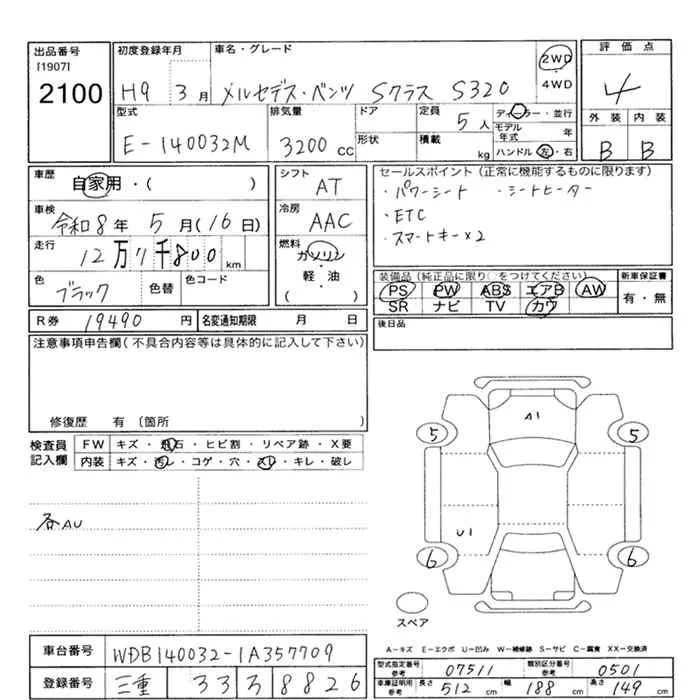 出品番号 初度登録年月 車名・グレード 評価点
[1907]
2100 H9 3月 メルセデス・ベンツ Sクラス S320 2WD 4WD 4
型式 排気量 ドア 定員 5人 ディーラー・並行 外装 内装
E-140032M 3200cc 形状 積載 kg モデル年式 年 B B
ハンドル 左・右
車歴 自家用・( ) シフト AT セールスポイント(正常に機能するものに限ります)
・パワーシート ・シートヒーター
車検 令和8年5月(16日) 冷房 AAC ・ETC
・スマートキー×2
走行 12万 千800km 燃料 ガソリン・軽・油 ( )
色 ブラック 色替 色コード 装備品(純正品に限り○をつけてください) 新車保証書
PS PW ABS エアB AW 有・無
SR ナビ TV カワ
R券 19490円 名変通知期限 月 日 後日品
注意事項申告欄(不具合内容等は具体的に記入して下さい)
修復歴 有(箇所 )
検査員記入欄 FW キズ・飛石・ヒビ割・リペア跡・X要
内装 キズ・汚レ・コゲ・穴・スレ・キレ・破レ
各AU
A1
5 5
U1
6 6
スペア
A-キズ E-エクボ U-凹み W-補修跡 S-サビ C-腐食 XX-交換済
車台番号 WDB140032-1A357709 型式指定番号参考 07511 類別区分番号参考 0501
登録番号 三重 33 ろ 8826 車庫証明用参考 長さ 512cm 幅 188cm 高さ 149cm